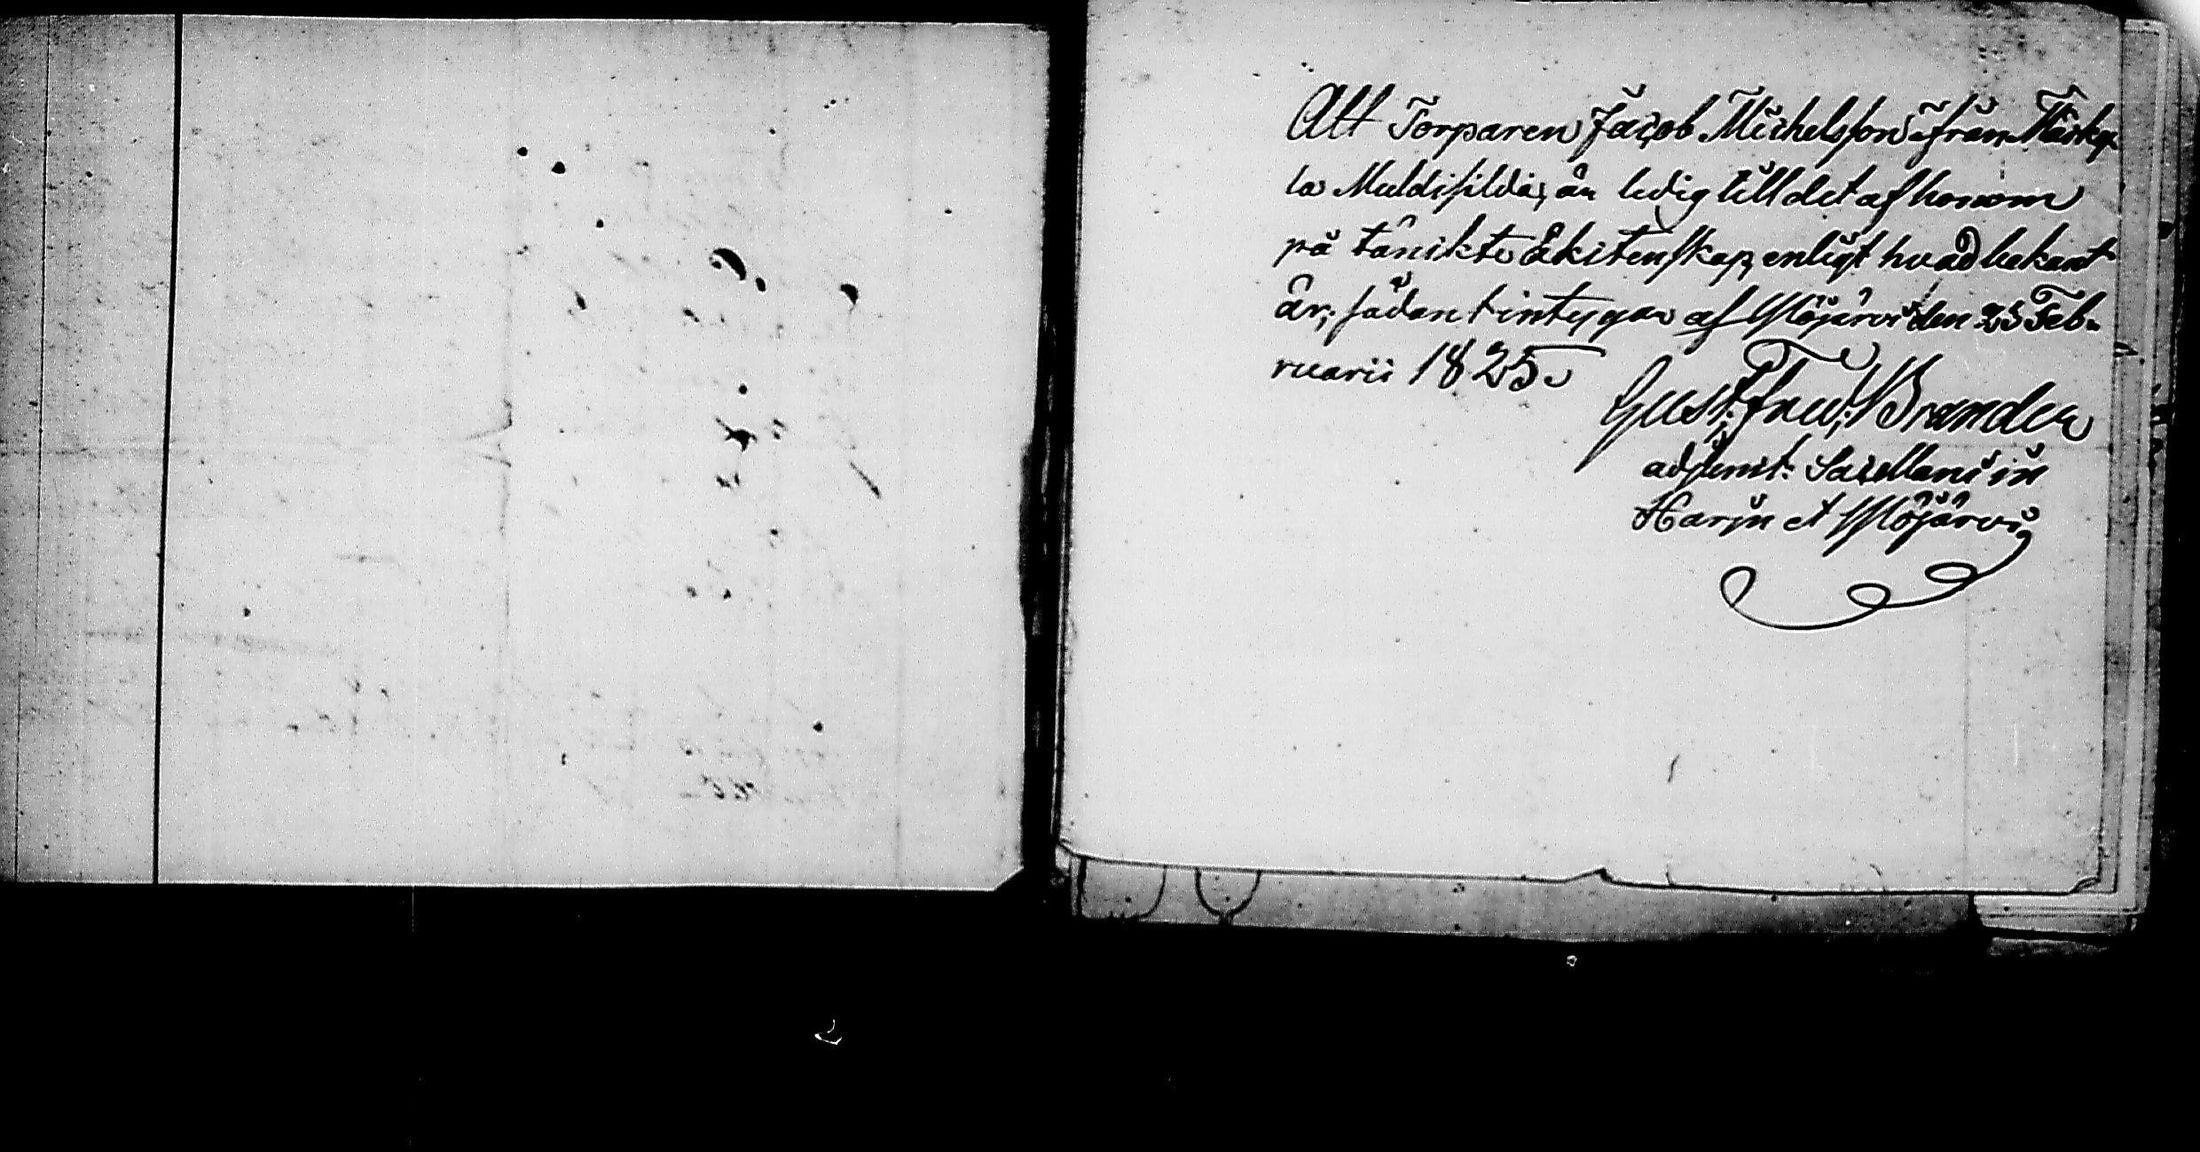 Att Torparen Jacob Michelsson ifrån
la är ledig till det af honom
på tänkte Ektenskap, enligt hvad bekant
är, sådant intygar af Ylöjärvi den 25 Feb-
ruarii 1825.
Gust: Fred: Brander
adjunct: Sacellani in
Harju et Ylöjärvi